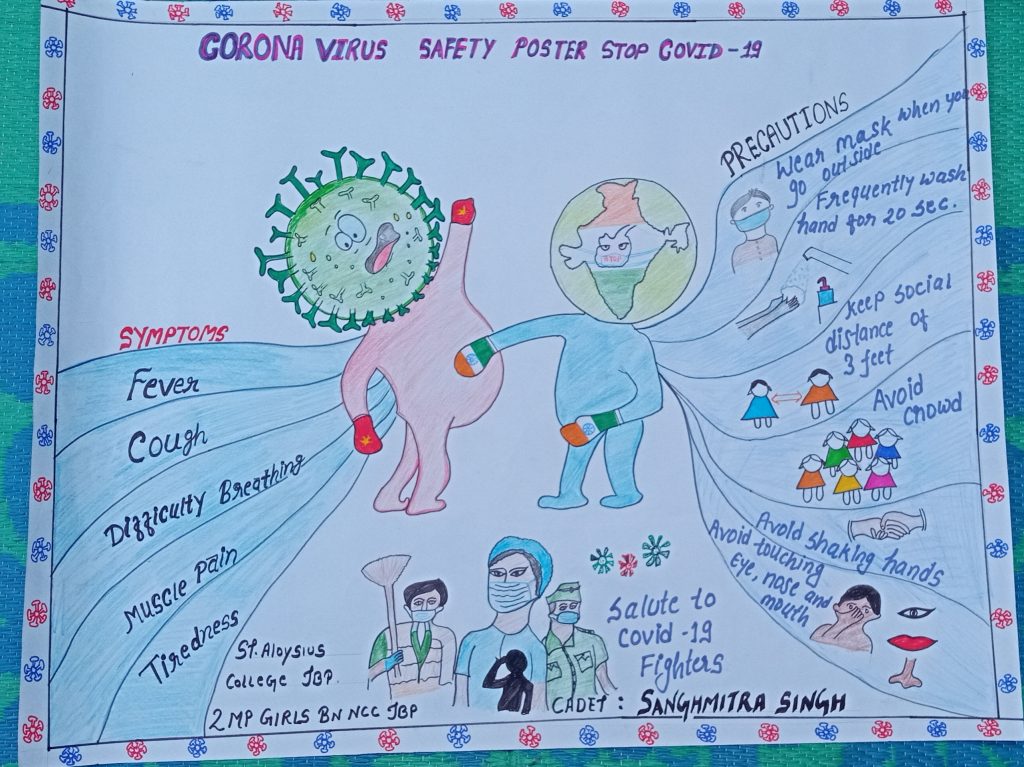 CORONA VIRUS SAFETY POSTER STOP COVID-19
SYMPTOMS
Fever
Cough
Difficulty Breathing
Muscle Pain
Tiredness
STOP
PRECAUTIONS
Wear mask when you
go outside
Frequently wash
hand for 20 sec.
keep social
distance of
3 feet
Avoid
Crowd
Avoid shaking hands
Avoid touching
Eye, nose and
mouth
Salute to
Covid -19
Fighters
St. Aloysius
College JBP.
2 MP GIRLS BN NCC JBP
CADET : SANGHMITRA SINGH